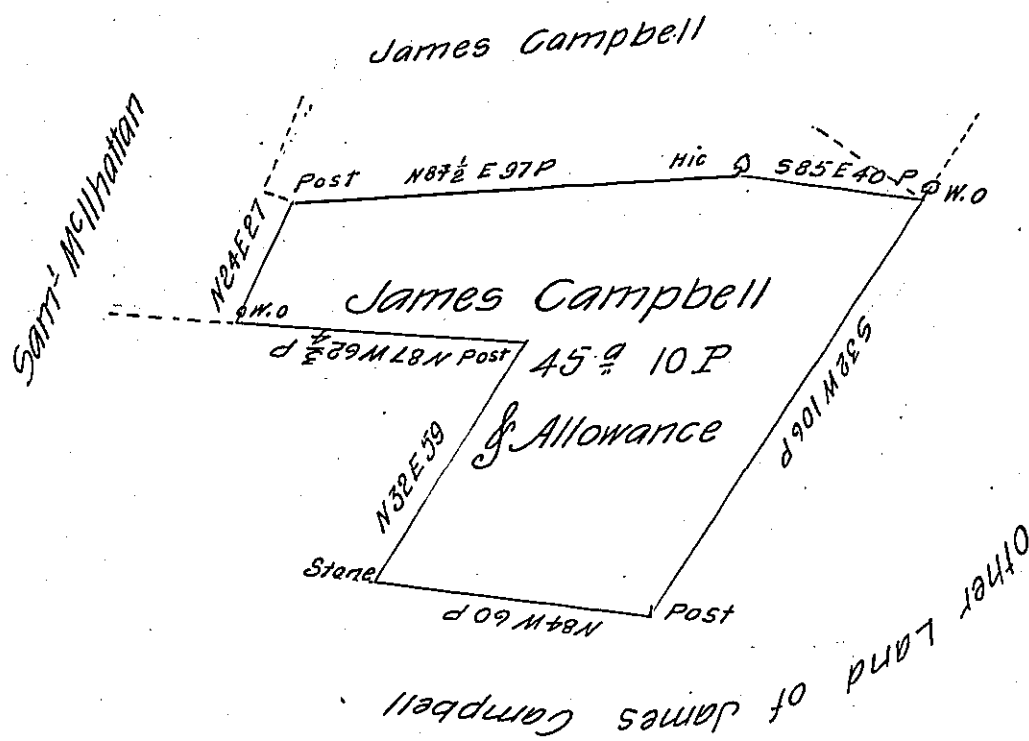 James Campbell
Sam.l McIlhattan
Post
N87 1/2 E 97 P
Hic
S85 E 40 P
W.O
N24E27
W.O
James Campbell
N87W62 3/4 P
Post
45 a 10 P
& Allowance
S32W106P
N32E59
Stone
N84W60P
Post
Other Land of James Campbell